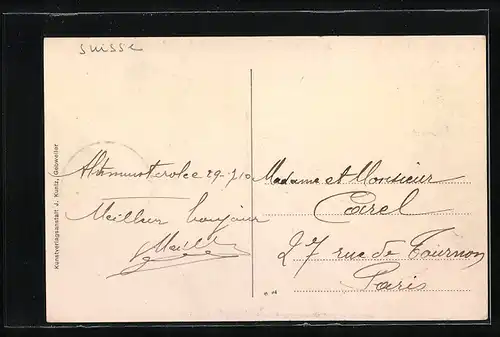 suisse
Kunstverlagsanstalt J. Kuntz, Gebweiler
29-7 10
Meilleur bonjour
Madame et Monsieur
27 rue de Tournon
Paris